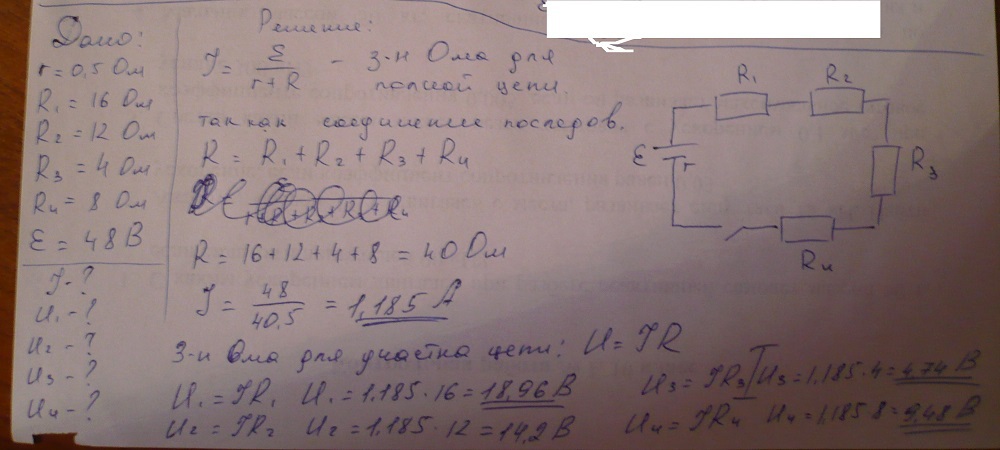 Дано:
r = 0,5 Ом
R₁ = 16 Ом
R₂ = 12 Ом
R₃ = 4 Ом
R₄ = 8 Ом
Ɛ = 48 В
I - ?
U₁ - ?
U₂ - ?
U₃ - ?
U₄ - ?
Решение:
I = Ɛ / (r + R) - З-н Ома для
полной цепи
так как соединение последов.
R = R₁ + R₂ + R₃ + R₄
R = 16 + 12 + 4 + 8 = 40 Ом
I = 48 / 40,5 = 1,185 А
З-н Ома для участка цепи: U = IR
U₁ = IR₁ U₁ = 1,185 · 16 = 18,96 В
U₂ = IR₂ U₂ = 1,185 · 12 = 14,2 В
U₃ = IR₃ U₃ = 1,185 · 4 = 4,74 В
U₄ = IR₄ U₄ = 1,185 · 8 = 9,48 В
R₁ R₂
Ɛ r R₃
R₄